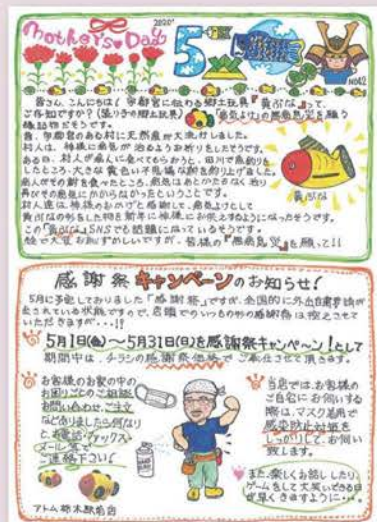 Mother's Day
2020'
5
No42
皆さん、こんにちは！宇都宮に伝わる郷土玩具『黄ぶな』って、
ご存知ですか？(張り子の郷土玩具)
『病気よけ』の無病息災を願う
縁起物だそうです。
昔、宇都宮のある村に天然痘が大流行しました。
村人は、神様に病気が治るようお祈りをしたそうです。
ある日、村人が病人に食べてもらおうと、田川で魚釣りを
したところ、大きな黄色い不思議な鮒を釣り上げました。
病人がその鮒を食べたところ、病気はあとかたもなく治り
再びその病気にかからなかったということです。
村人達は神様のおかげと感謝して、病気よけとして
黄ぶなの形をした物を新年に神様にお供えするようになったそうです。
この『黄ぶな』SNSでも話題になっているそうです。
皆様の『無病息災』を願って!!
黄ぶな
感謝祭キャンペーンのお知らせ！
5月に予定しておりました「感謝祭」ですが、全国的に外出自粛要請が
出されている状態ですので、店頭でのいつもの形の感謝祭は控えさせて
いただきますが・・・!!
5月1日(金)～5月31日(日)を感謝祭キャンペーン！として
期間中は、チラシの感謝祭価格でご奉仕させて頂きます。
お客様のお家の中の
お困りごとのご相談
お問い合わせ、ご注文
などありましたら何なり
とお電話・ファックス・
メール等で
ご連絡下さい！
当店では、お客様の
ご自宅にお伺いする
際は、マスク着用で
感染防止対策を
しっかりして、お伺い
致します。
また、楽しくお話ししたり、
ゲームをして大笑いできる日が
早くきますように・・・。
アトム栃木駅前店